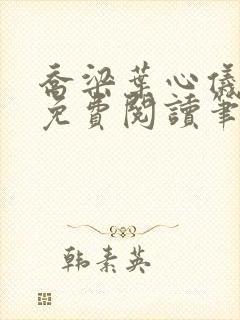 喬梁葉心儀
免費閱讀筆
韩素英